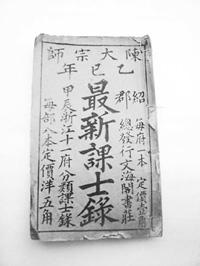 陳大宗師
乙巳年
紹郡
最新課士錄
每府一本 定價壹角
總發行文海閣書莊
甲辰浙江十一府分類課士錄
每部八本定價洋五角